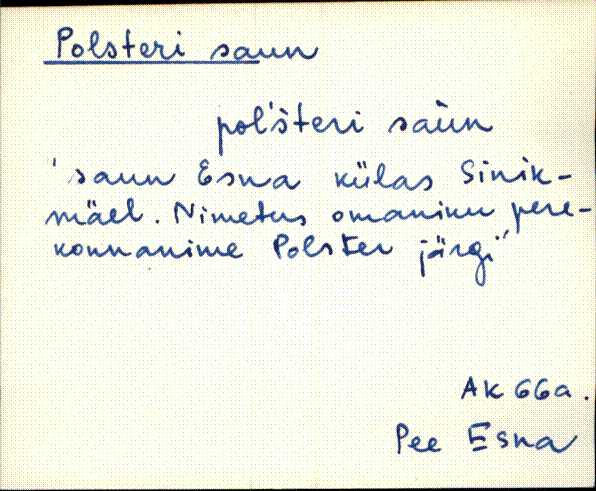 Polsteri saun
pol'šteri saùn
'saun Esna külas Sinik-
mäel. Nimetus omaniku pere-
konnanime Polster järgi'
AK 66a.
Pee Esna